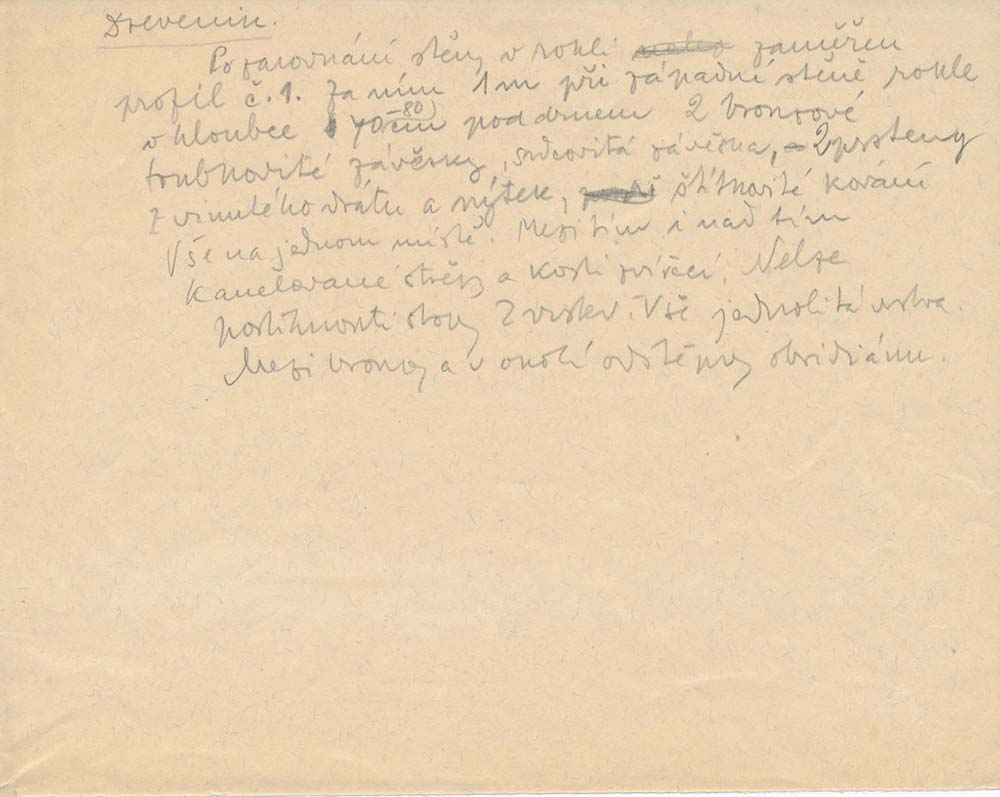 Drevenik.
Po zarovnání stěny v rokli zaměřen
profil č. 1. Za ním 1 m při západní stěně rokle
v hloubce 70 -80) cm pod drnem 2 bronzové
trubkovité závěsky, srdcovitá závěska, 2 prsteny
z vinutého drátu a nýtek, štítkovité kování
Vše na jednom místě. Mezi tím i nad tím
kanelované střepy a kosti zvířecí. Nelze
postihnouti stopy vrstev. Vše jednolitá vrstva.
Mezi bronzy a v okolí odštěpky obsidiánu.